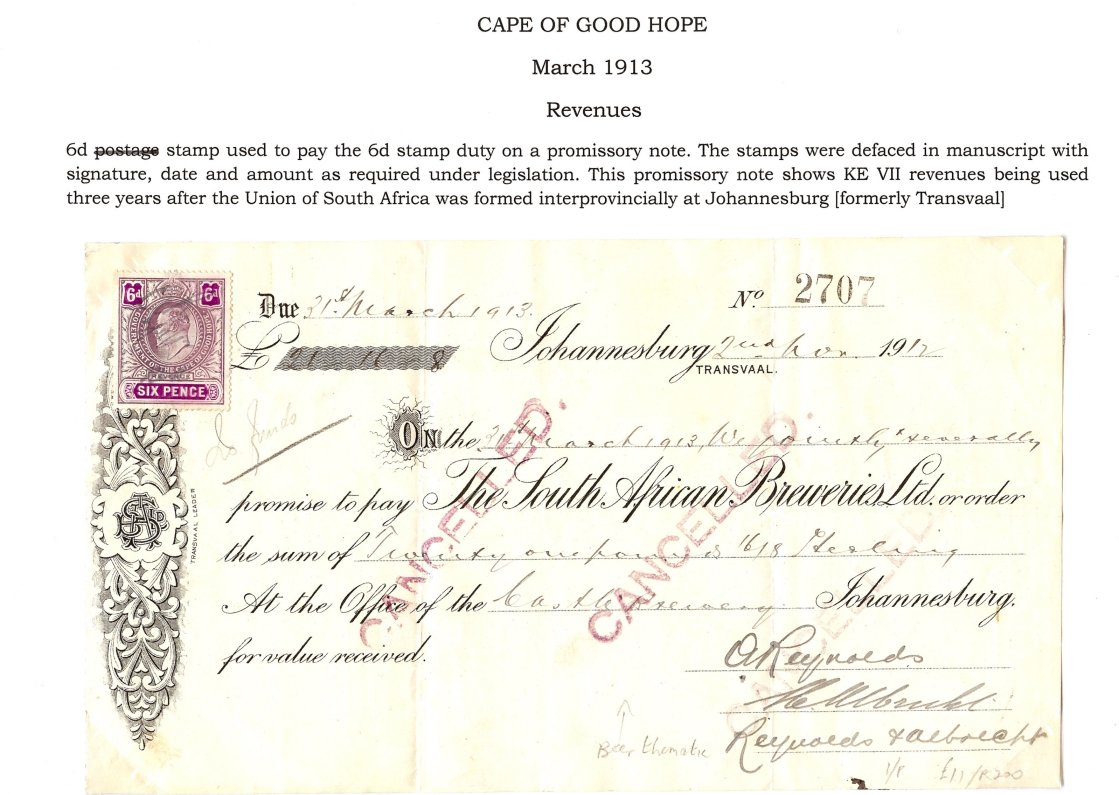 CAPE OF GOOD HOPE
March 1913
Revenues
6d postage stamp used to pay the 6d stamp duty on a promissory note. The stamps were defaced in manuscript with
signature, date and amount as required under legislation. This promissory note shows KE VII revenues being used
three years after the Union of South Africa was formed interprovincially at Johannesburg [formerly Transvaal]
6d 6d
SIX PENCE
Due 31st March 1913.
No 2707
£ 21 - 16 - 8
Johannesburg 2nd Nov. 1912
TRANSVAAL.
On the 31st March 1913, We jointly & severally
promise to pay The South African Breweries Ltd. or order
the sum of Twenty one pounds 16/8 Sterling
At the Office of the Castle Brewery Johannesburg.
for value received.
TRANSVAAL LEADER
CANCELLED.
CANCELLED.
CANCELLED
A Reynolds
Reynolds & Albrecht
Beer thematic
£11/R200